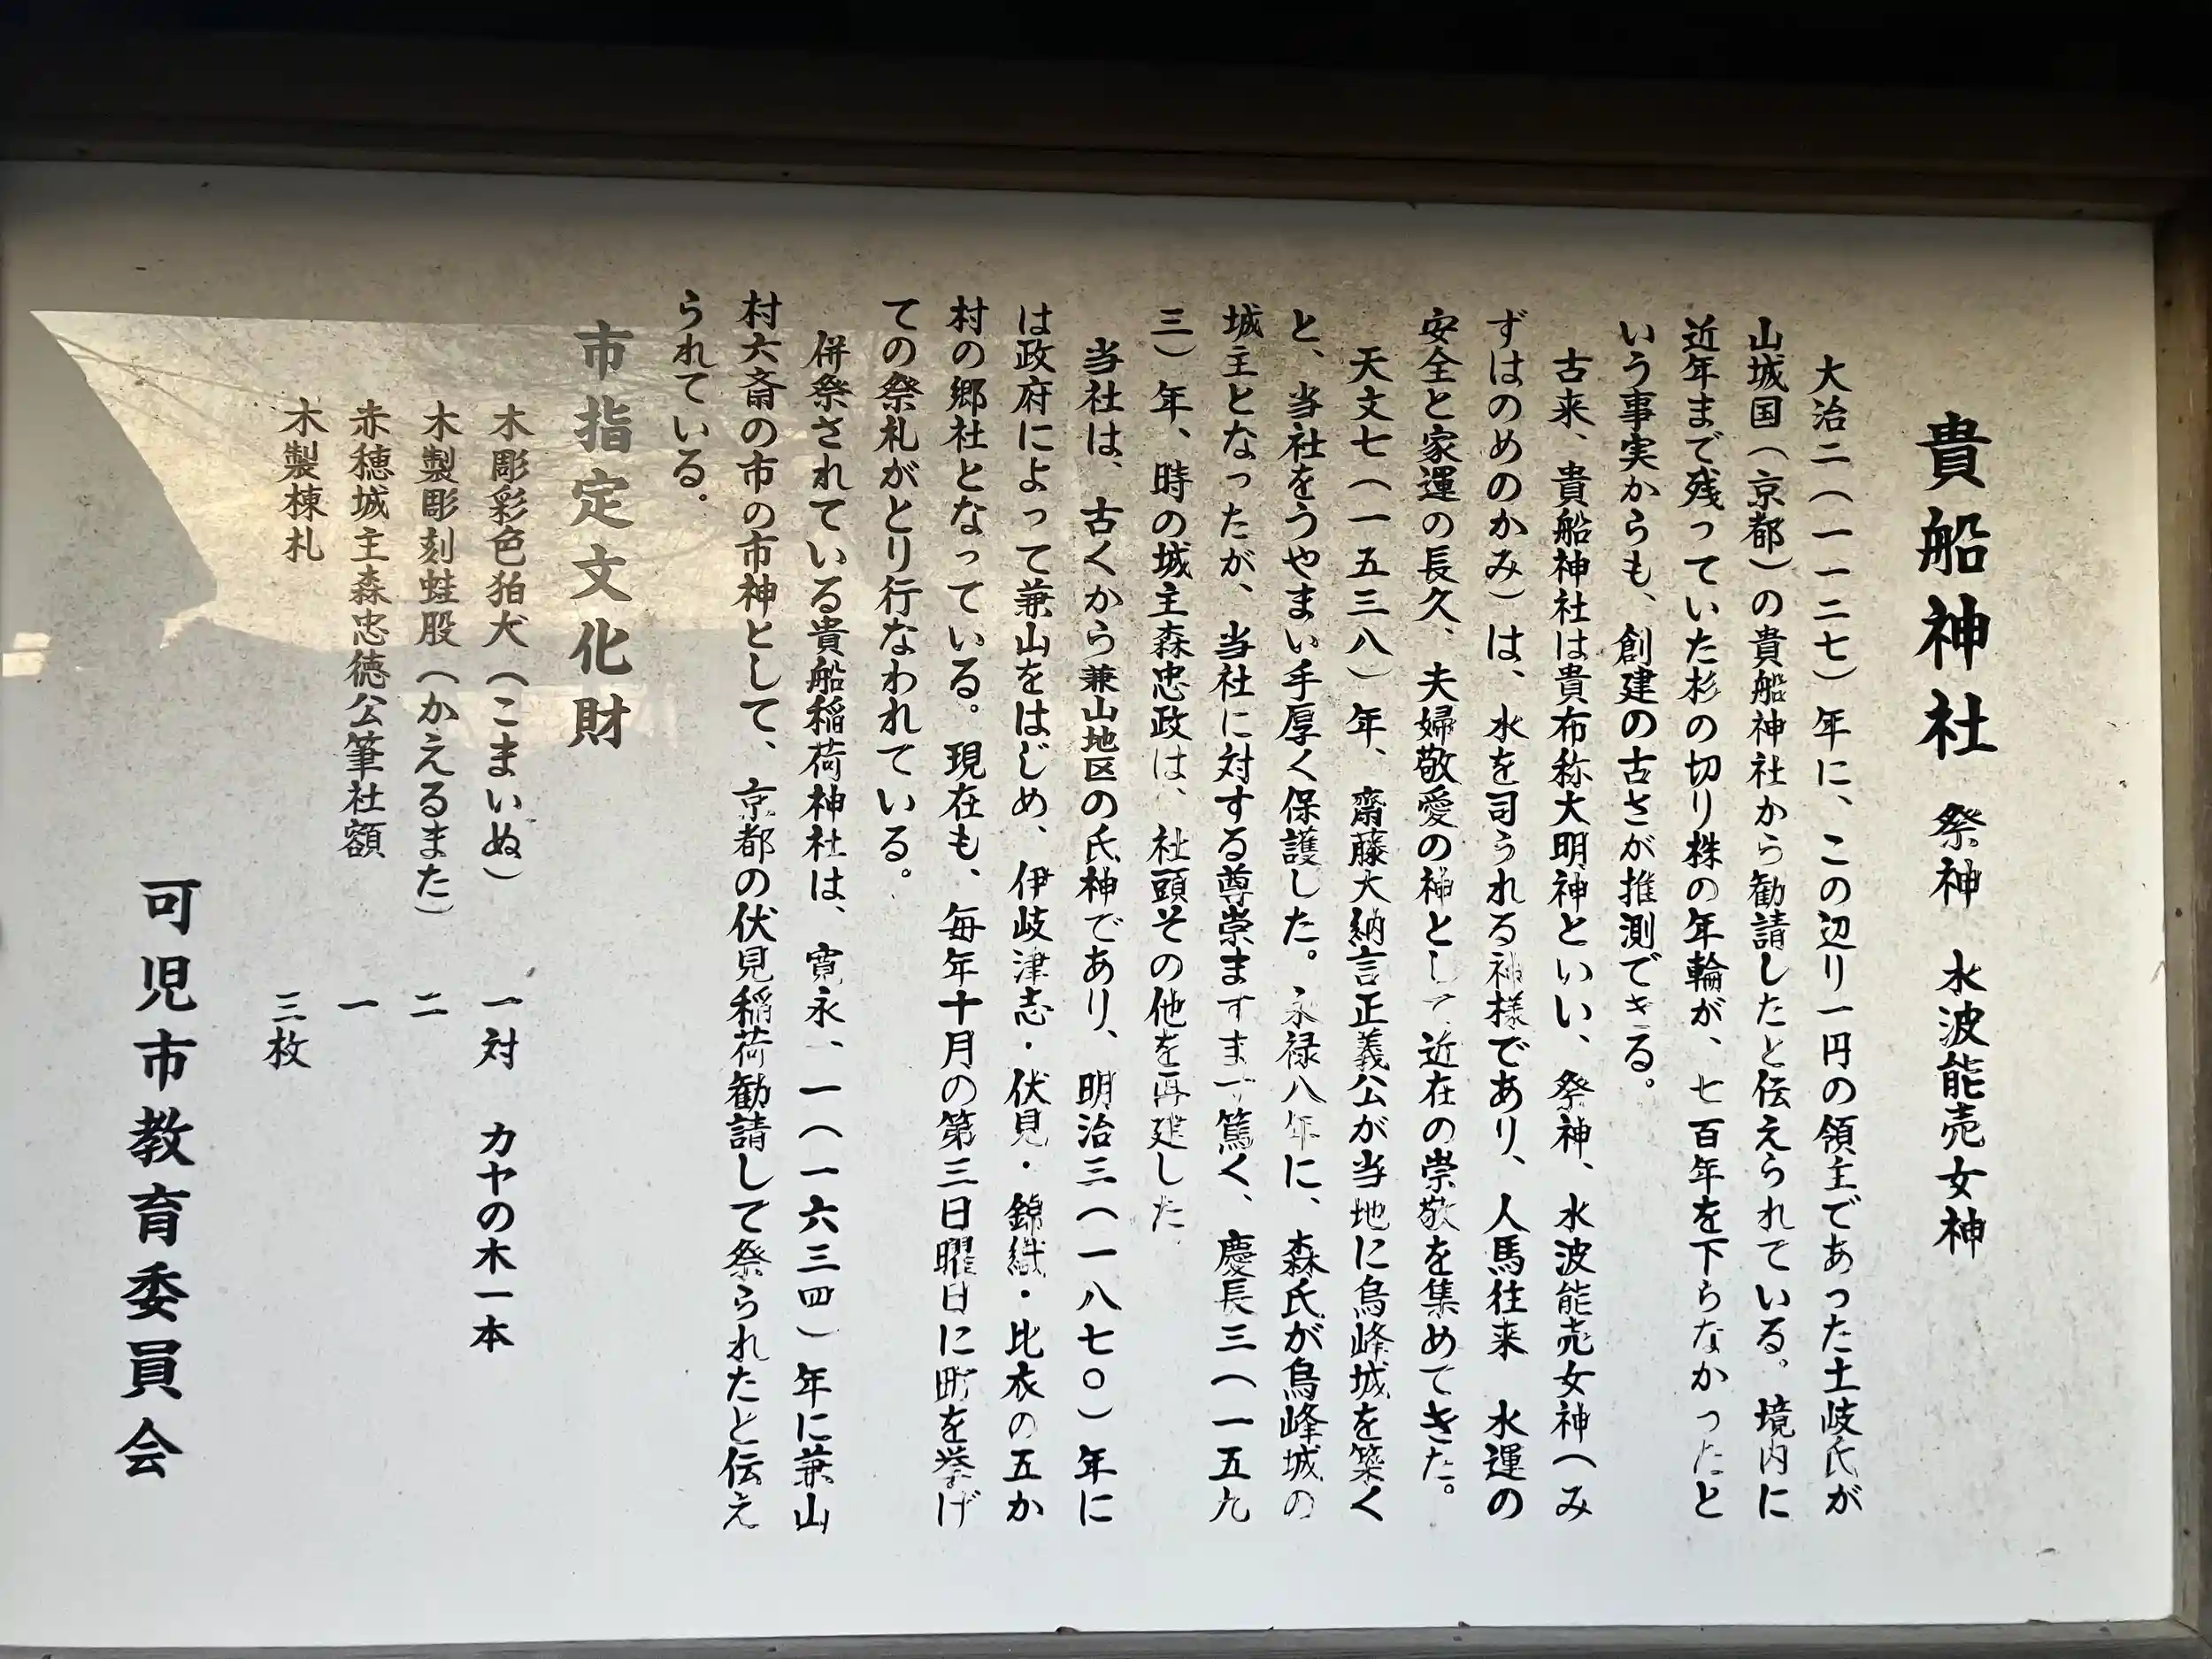 貴船神社 祭神 水波能売女神
大治二(一一二七)年に、この辺り一円の領主であった土岐氏が
山城国(京都)の貴船神社から勧請したと伝えられている。境内に
近年まで残っていた杉の切り株の年輪が、七百年を下らなかったと
いう事実からも、創建の古さが推測できる。
古来、貴船神社は貴布称大明神といい、祭神、水波能売女神(み
ずはのめのかみ)は、水を司うれる神様であり、人馬往来 水運の
安全と家運の長久、夫婦敬愛の神として近在の崇敬を集めてきた。
天文七(一五三八)年、齋藤大納言正義公が当地に烏峰城を築く
と、当社をうやまい手厚く保護した。永禄八年に、森氏が烏峰城の
城主となったが、当社に対する尊崇ますます篤く、慶長三(一五九
三)年、時の城主森忠政は、社頭その他を再建した
当社は、古くから兼山地区の氏神であり、明治三(一八七〇)年に
は政府によって兼山をはじめ、伊岐津志・伏見・錦織・比衣の五か
村の郷社となっている。現在も、毎年十月の第三日曜日に町を挙げ
ての祭札がとり行なわれている。
併祭されている貴船稲荷神社は、寛永、一(一六三四)年に兼山
村六斎の市の市神として、京都の伏見稲荷勧請して祭られたと伝え
られている。
市指定文化財
木彫彩色狛犬(こまいぬ) 一対 カヤの木一本
木製彫刻蛙股(かえるまた) 二
赤穂城主森忠徳公筆社額 一
木製棟札 三枚
可児市教育委員会